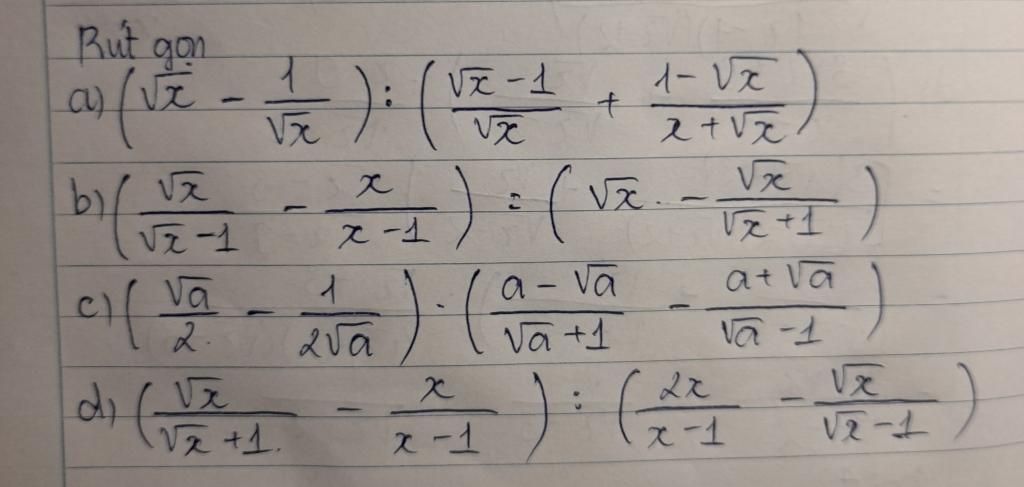 Rút gọn
a) (√x - 1/√x) : ((√x - 1)/√x + (1 - √x)/(x + √x))
b) (√x/(√x - 1) - x/(x - 1)) : (√x - √x/(√x + 1))
c) (√a/2 - 1/(2√a)) · ((a - √a)/(√a + 1) - (a + √a)/(√a - 1))
d) (√x/(√x + 1) - x/(x - 1)) : (2x/(x - 1) - √x/(√x - 1))